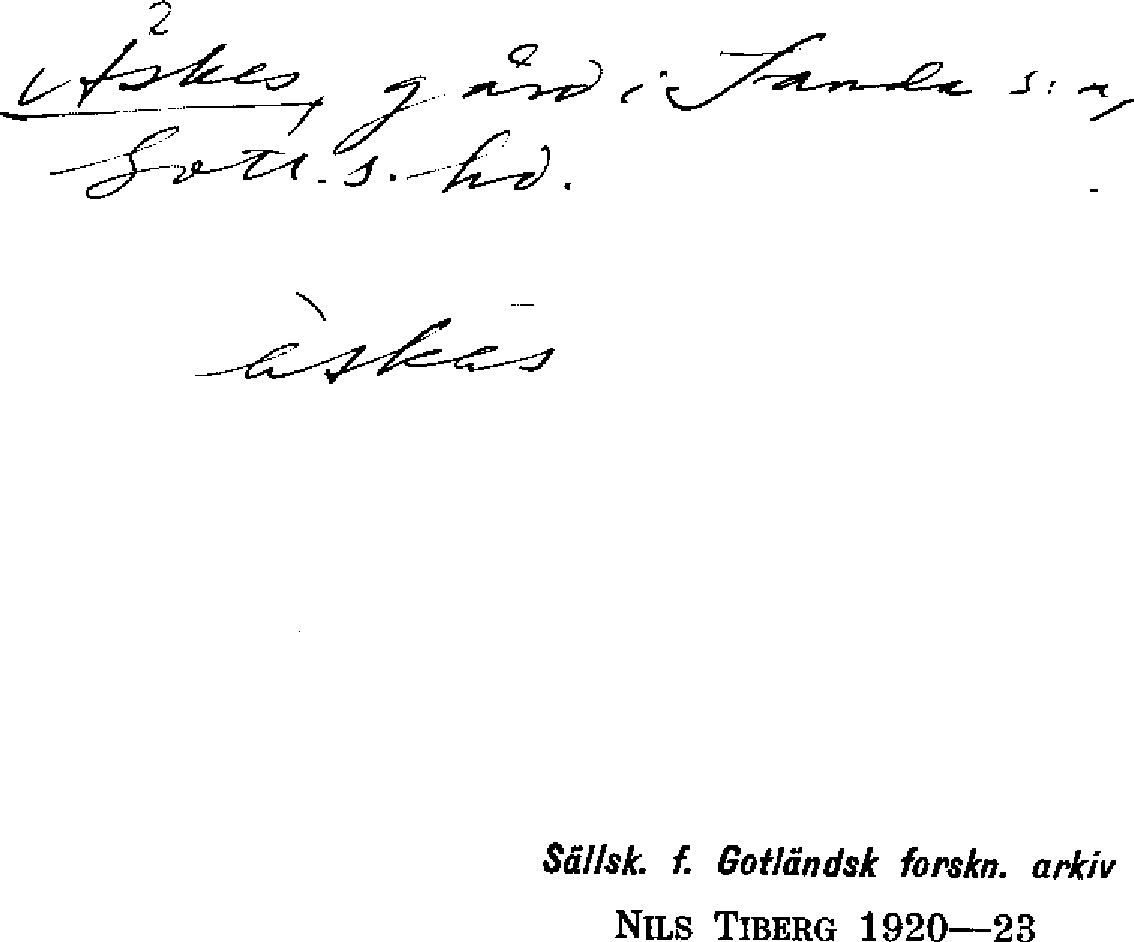 Åskes, gård i Sanda s:n,
Gotl. s. hd.
àskas
Sällsk. f. Gotländsk forskn. arkiv
NILS TIBERG 1920—23